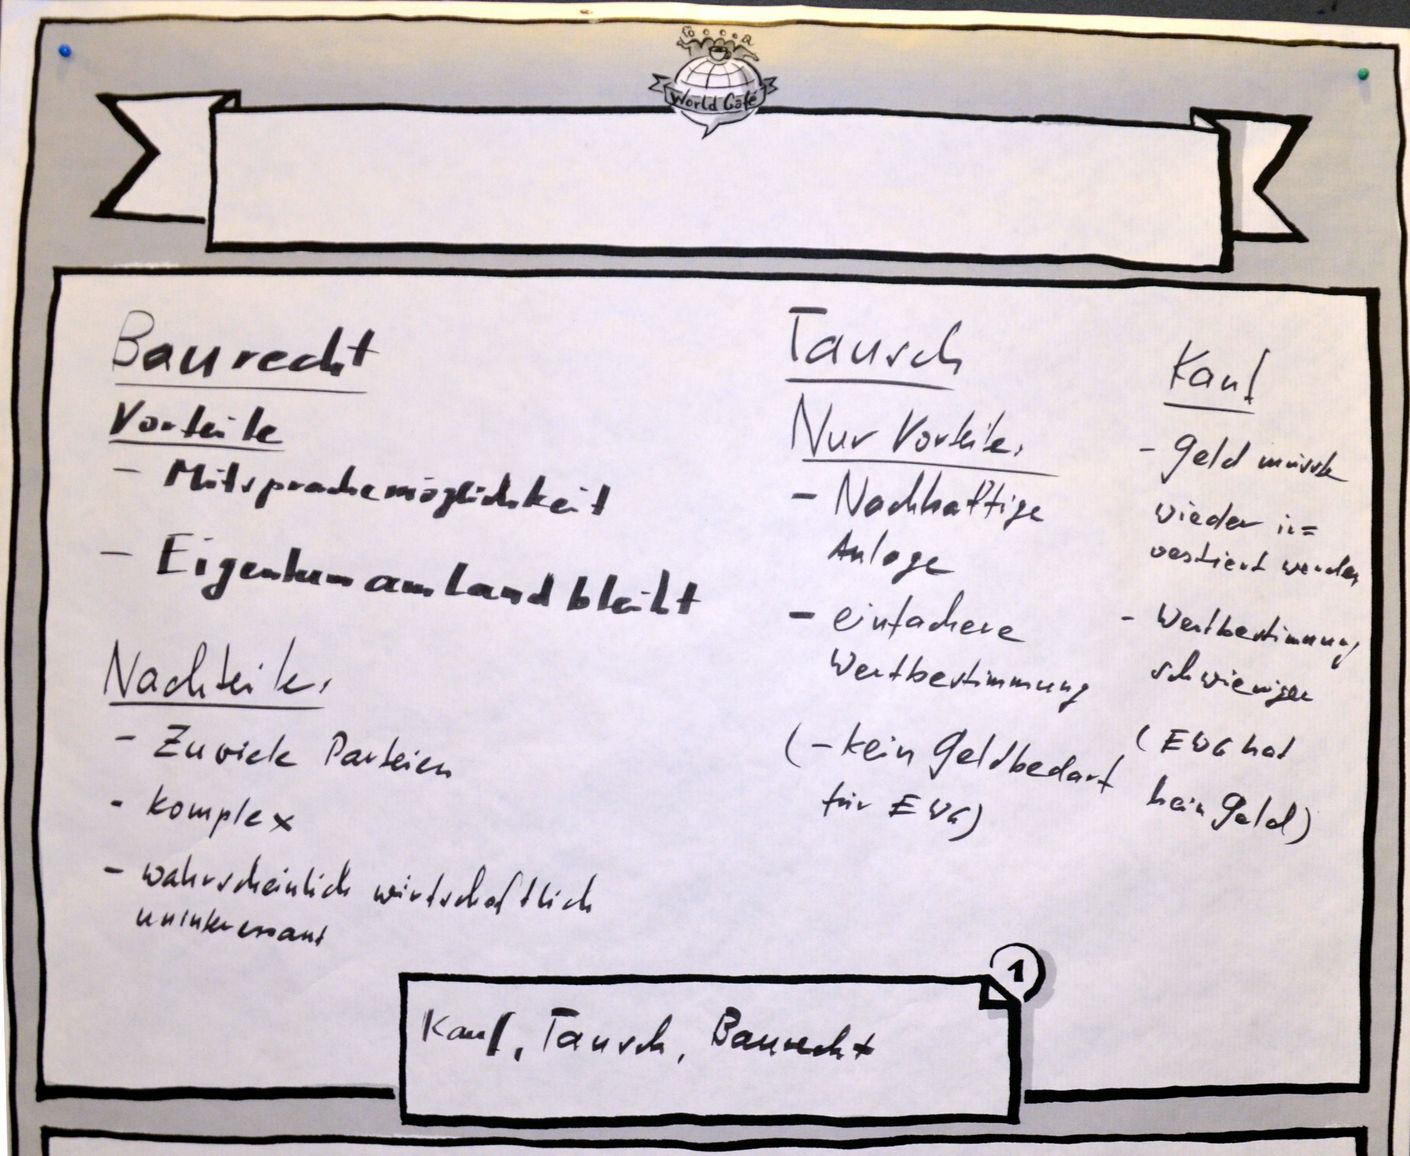 World Café
Baurecht
Vorteile
- Mitsprachemöglichkeit
- Eigentum am Land bleibt
Nachteile:
- Zu viele Parteien
- komplex
- wahrscheinlich wirtschaftlich
uninteressant
Tausch
Nur Vorteile:
- Nachhaltige
Anlage
- einfachere
Wertbestimmung
(- kein Geldbedarf
für EWG)
Kauf
- Geld müsste
wieder in=
vestiert werden
- Wertbestimmung
schwieriger
(EWG hat
kein Geld)
1
Kauf, Tausch, Baurecht